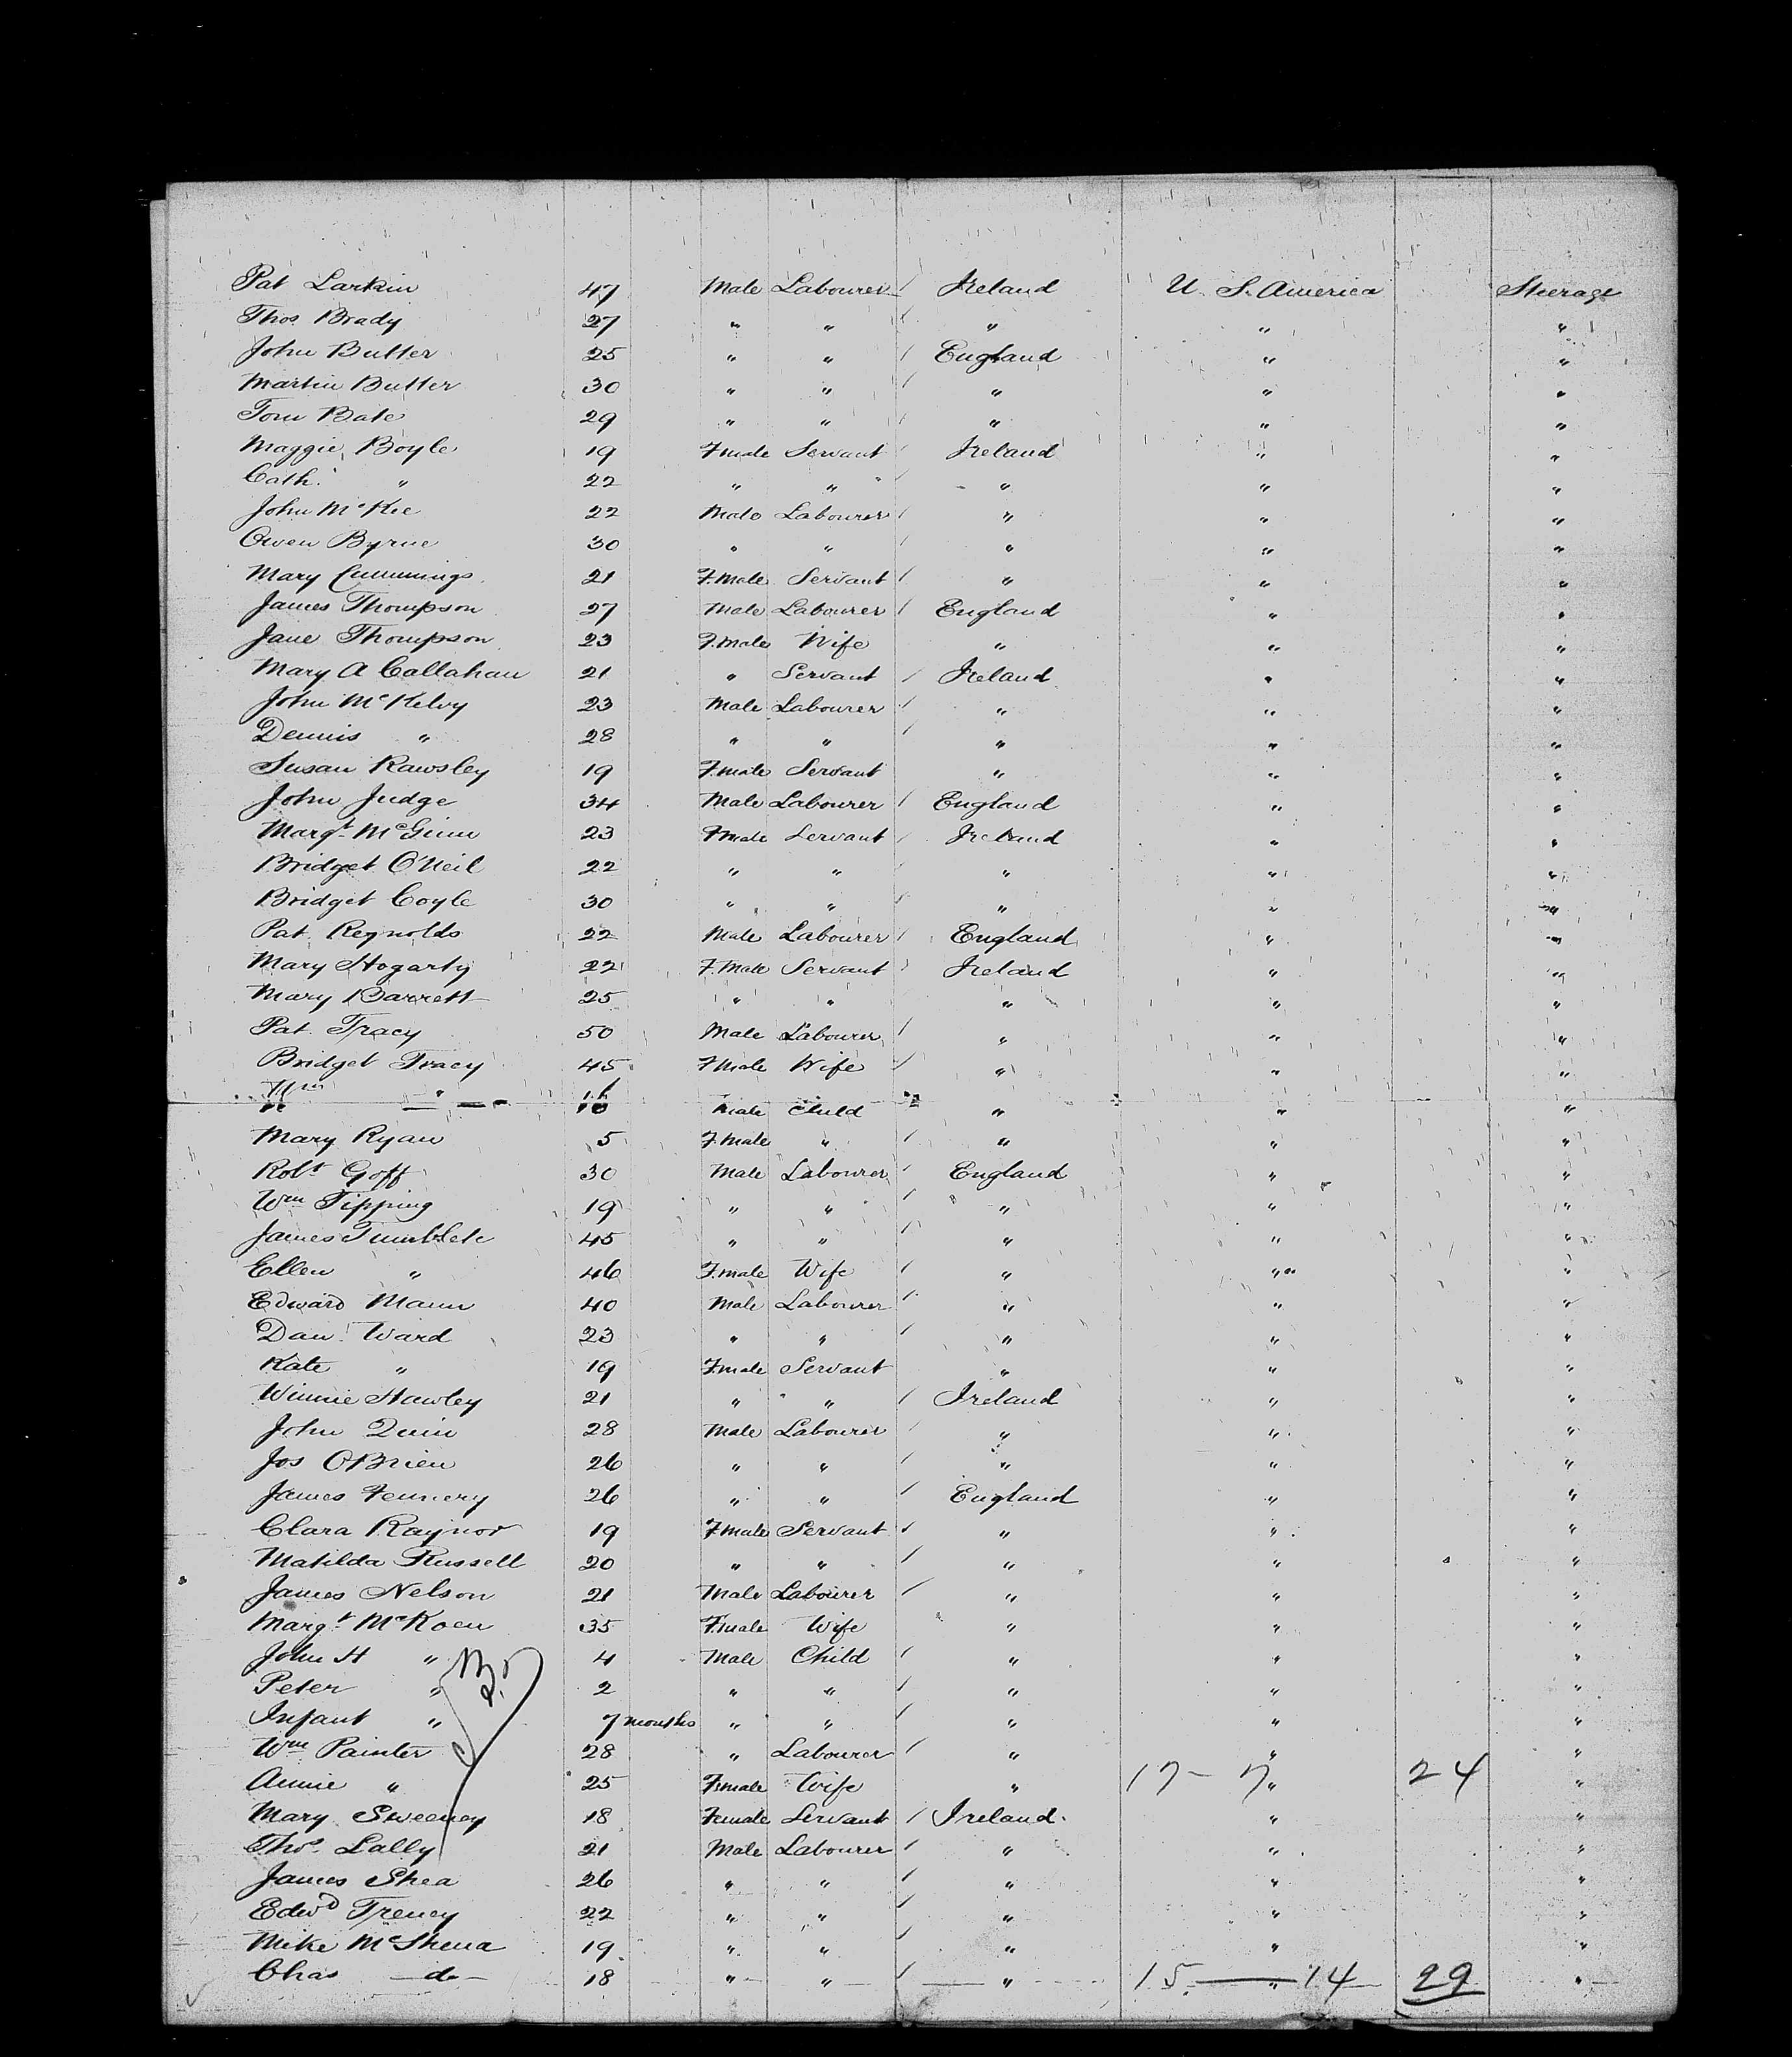 Pat Larkin 47 Male Labourer Ireland U. S. America Steerage
Thos. Brady 27 " " " " "
John Butler 25 " " England " "
Martin Butler 30 " " " " "
Tom Bate 29 " " " " "
Maggie Boyle 19 Fmale Servant Ireland " "
Cath. " 22 " " " " "
John McKee 22 Male Labourer " " "
Owen Byrne 30 " " " " "
Mary Cummings 21 F.male Servant " " "
James Thompson 27 Male Labourer England " "
Jane Thompson 23 F.male Wife " " "
Mary A Callahan 21 " Servant Ireland " "
John McKelvy 23 Male Labourer " " "
Dennis " 28 " " " " "
Susan Rawsley 19 F.male Servant " " "
John Judge 34 Male Labourer England " "
Margt. McGinn 23 Fmale Servant Ireland " "
Bridget O'Neil 22 " " " " "
Bridget Coyle 30 " " " " "
Pat. Reynolds 22 Male Labourer England " "
Mary Hogarty 22 F.male Servant Ireland " "
Mary Barrett 25 " " " " "
Pat. Tracy 50 Male Labourer " " "
Bridget Tracy 45 Fmale Wife " " "
" Male Child " " "
Mary Ryan 5 F.male " " " "
Robt Goff 30 Male Labourer England " "
Wm Tipping 19 " " " " "
James 45 " " " " "
Ellen " 46 F.male Wife " " "
Edward Mann 40 Male Labourer " " "
Dan. Ward 23 " " " " "
Kate " 19 F.male Servant " " "
Winnie Hawley 21 " " Ireland " "
John Quin 28 Male Labourer " " "
Jos OBrien 26 " " " " "
James Fennery 26 " " England " "
Clara Raynor 19 F.male Servant " " "
Matilda Russell 20 " " " " "
James Nelson 21 Male Labourer " " "
Margt. McKoen 35 F.male Wife " " "
John H " 4 Male Child " " "
Peter " 2 " " " " "
Infant " 7 months " " " " "
Wm Painter 28 " Labourer " " "
Annie " 25 Female Wife " 17 - 7 " 24 "
Mary Sweeney 18 Female Servant Ireland " "
Thos. Lally 21 Male Labourer " " "
James Shea 26 " " " " "
Edwd Treney 22 " " " " "
Mike McShena 19 " " " " "
Chas - do - 18 " " " 15 - " 14 29 "